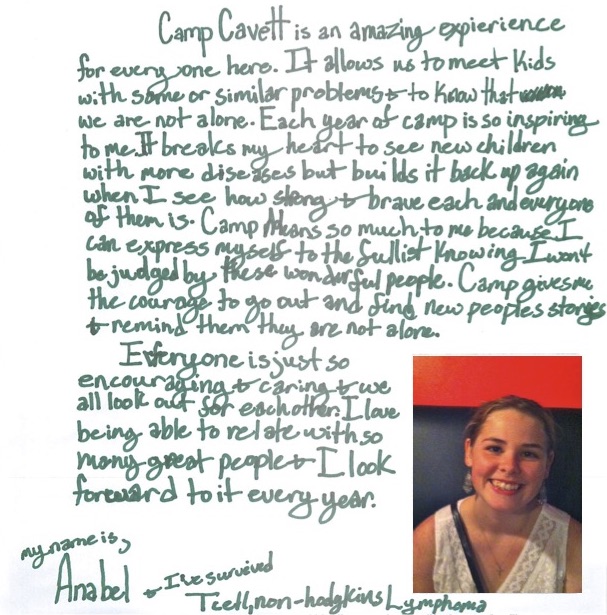 Camp Cavett is an amazing expierience
for every one here. It allows us to meet kids
with same or similar problems & to know that
we are not alone. Each year of camp is so inspiring
to me. It breaks my heart to see new children
with more diseases but builds it back up again
when I see how strong & brave each and everyone
of them is. Camp Means so much to me because I
can express myself to the fullist knowing I won't
be judged by these wonderful people. Camp gives me
the courage to go out and find new peoples stories
& remind them they are not alone.
Everyone is just so
encouraging & caring & we
all look out for eachother. I love
being able to relate with so
many great people & I look
foreward to it every year.
my name is,
Anabel & I've survived
Tcell, non-hodgkins Lymphoma